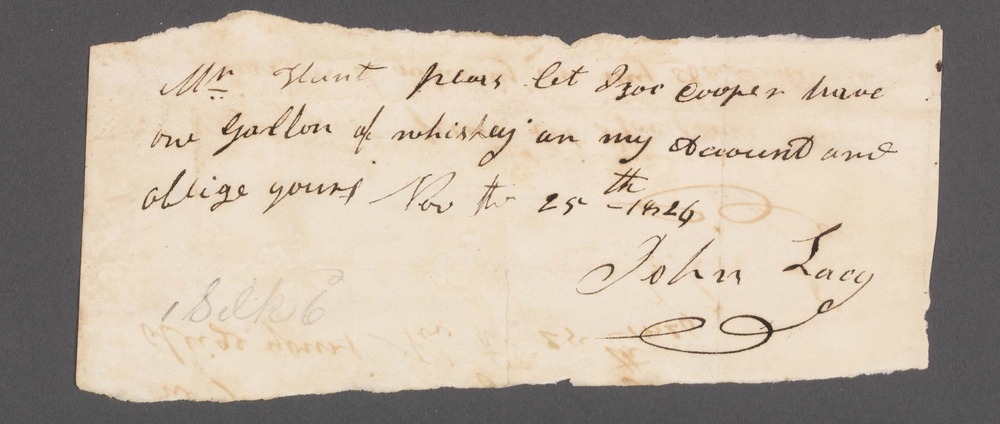 Mr. Hunt pleas let Isoc Cooper have
one gallon of whiskey on my Account and
oblige yours Nov the 25th 1826
John Lacy